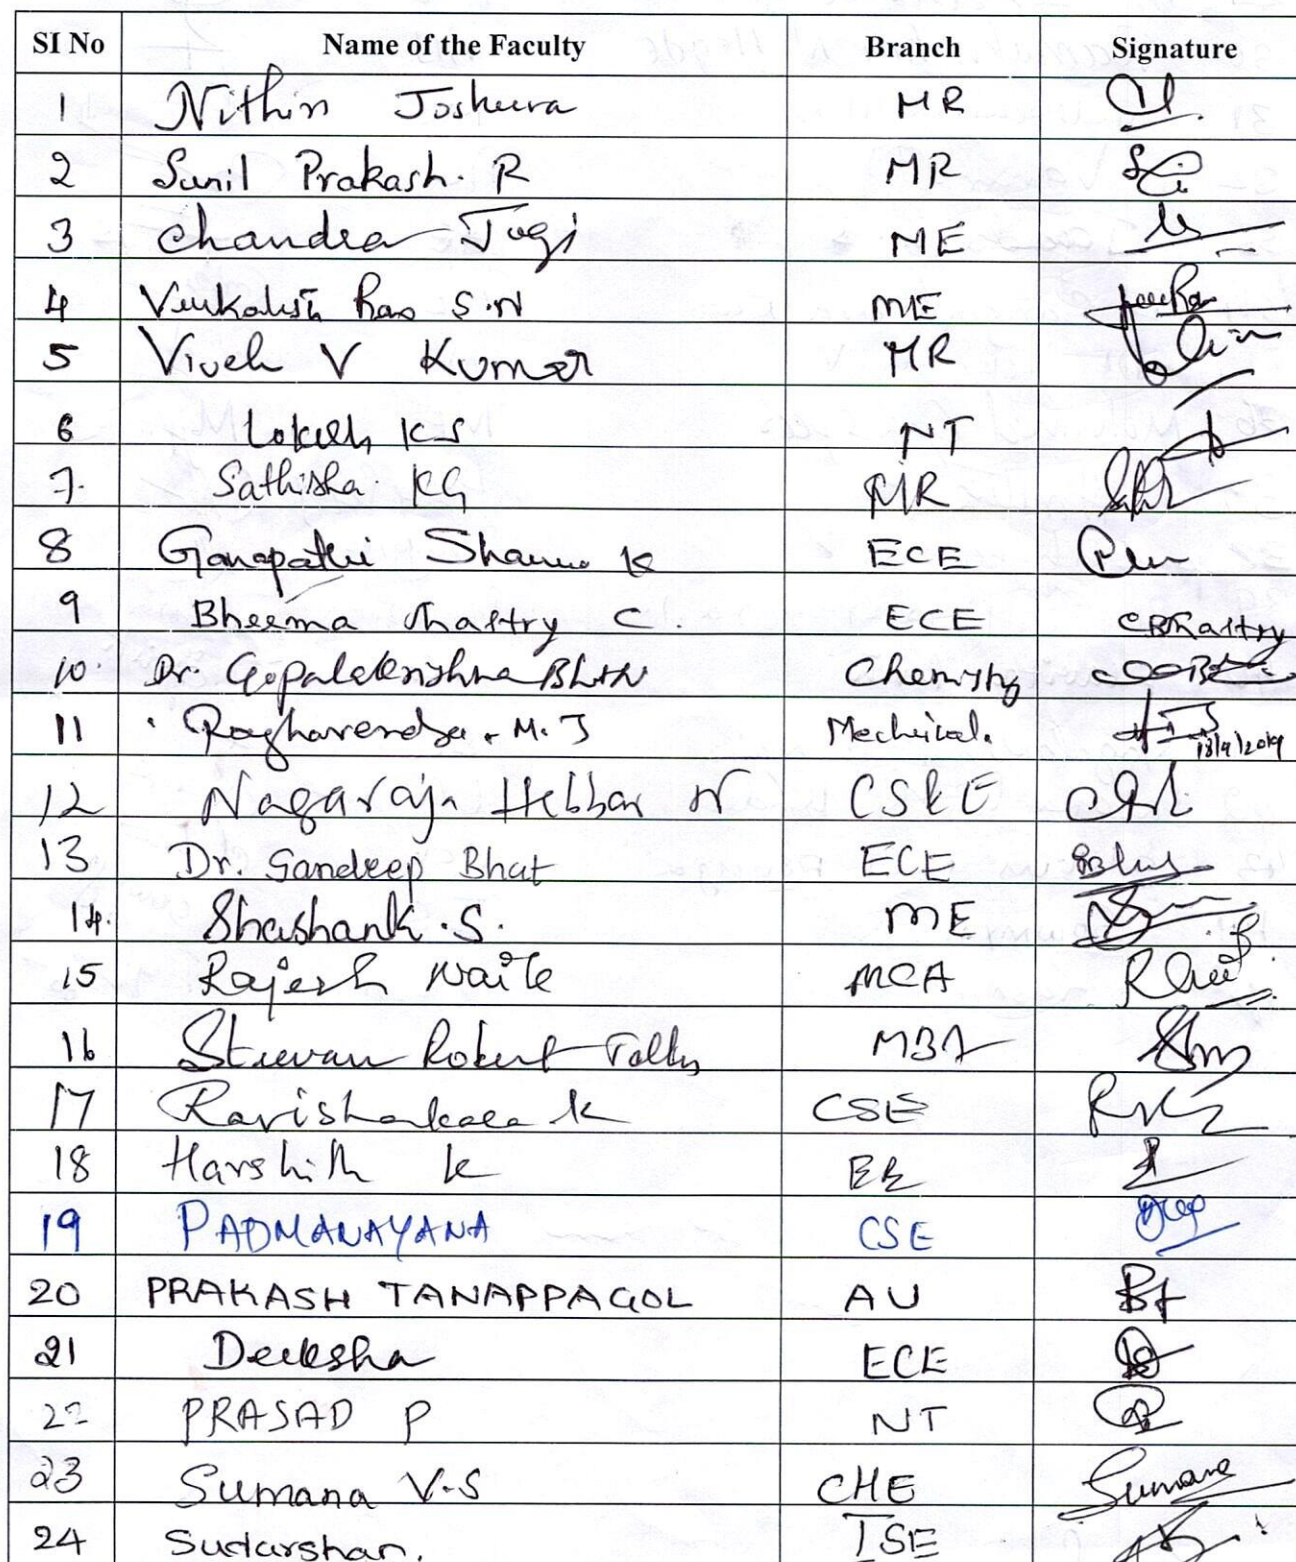 SI No Name of the Faculty Branch Signature
1 Nithin Joshuva MR
2 Sunil Prakash. R MR
3 Chandra Jogi ME
4 Venkatesh Rao S.N ME
5 Vivek V Kumar MR
6 Lokesh KS NT
7. Sathisha KG MR
8 Ganapathi Sharma K ECE
9 Bheema Shastry C. ECE CBShastry
10. Dr. Gopalakrishna Bhat N Chemistry
11 Raghavendra. M. J Mechnical. 13/9/2019
12 Nagaraja Hebbar N CS&E
13 Dr. Sandeep Bhat ECE
14. Shashank .S. ME
15 Rajesh Naik MCA
16 Steevan Robert Tellis MBA
17 Ravishankara K CSE
18 Harshith K EE
19 PADMANAYANA CSE
20 PRAKASH TANAPPAGOL AU
21 Deeksha ECE
22 PRASAD P NT
23 Sumana V.S CHE Sumana
24 Sudarshan. ISE